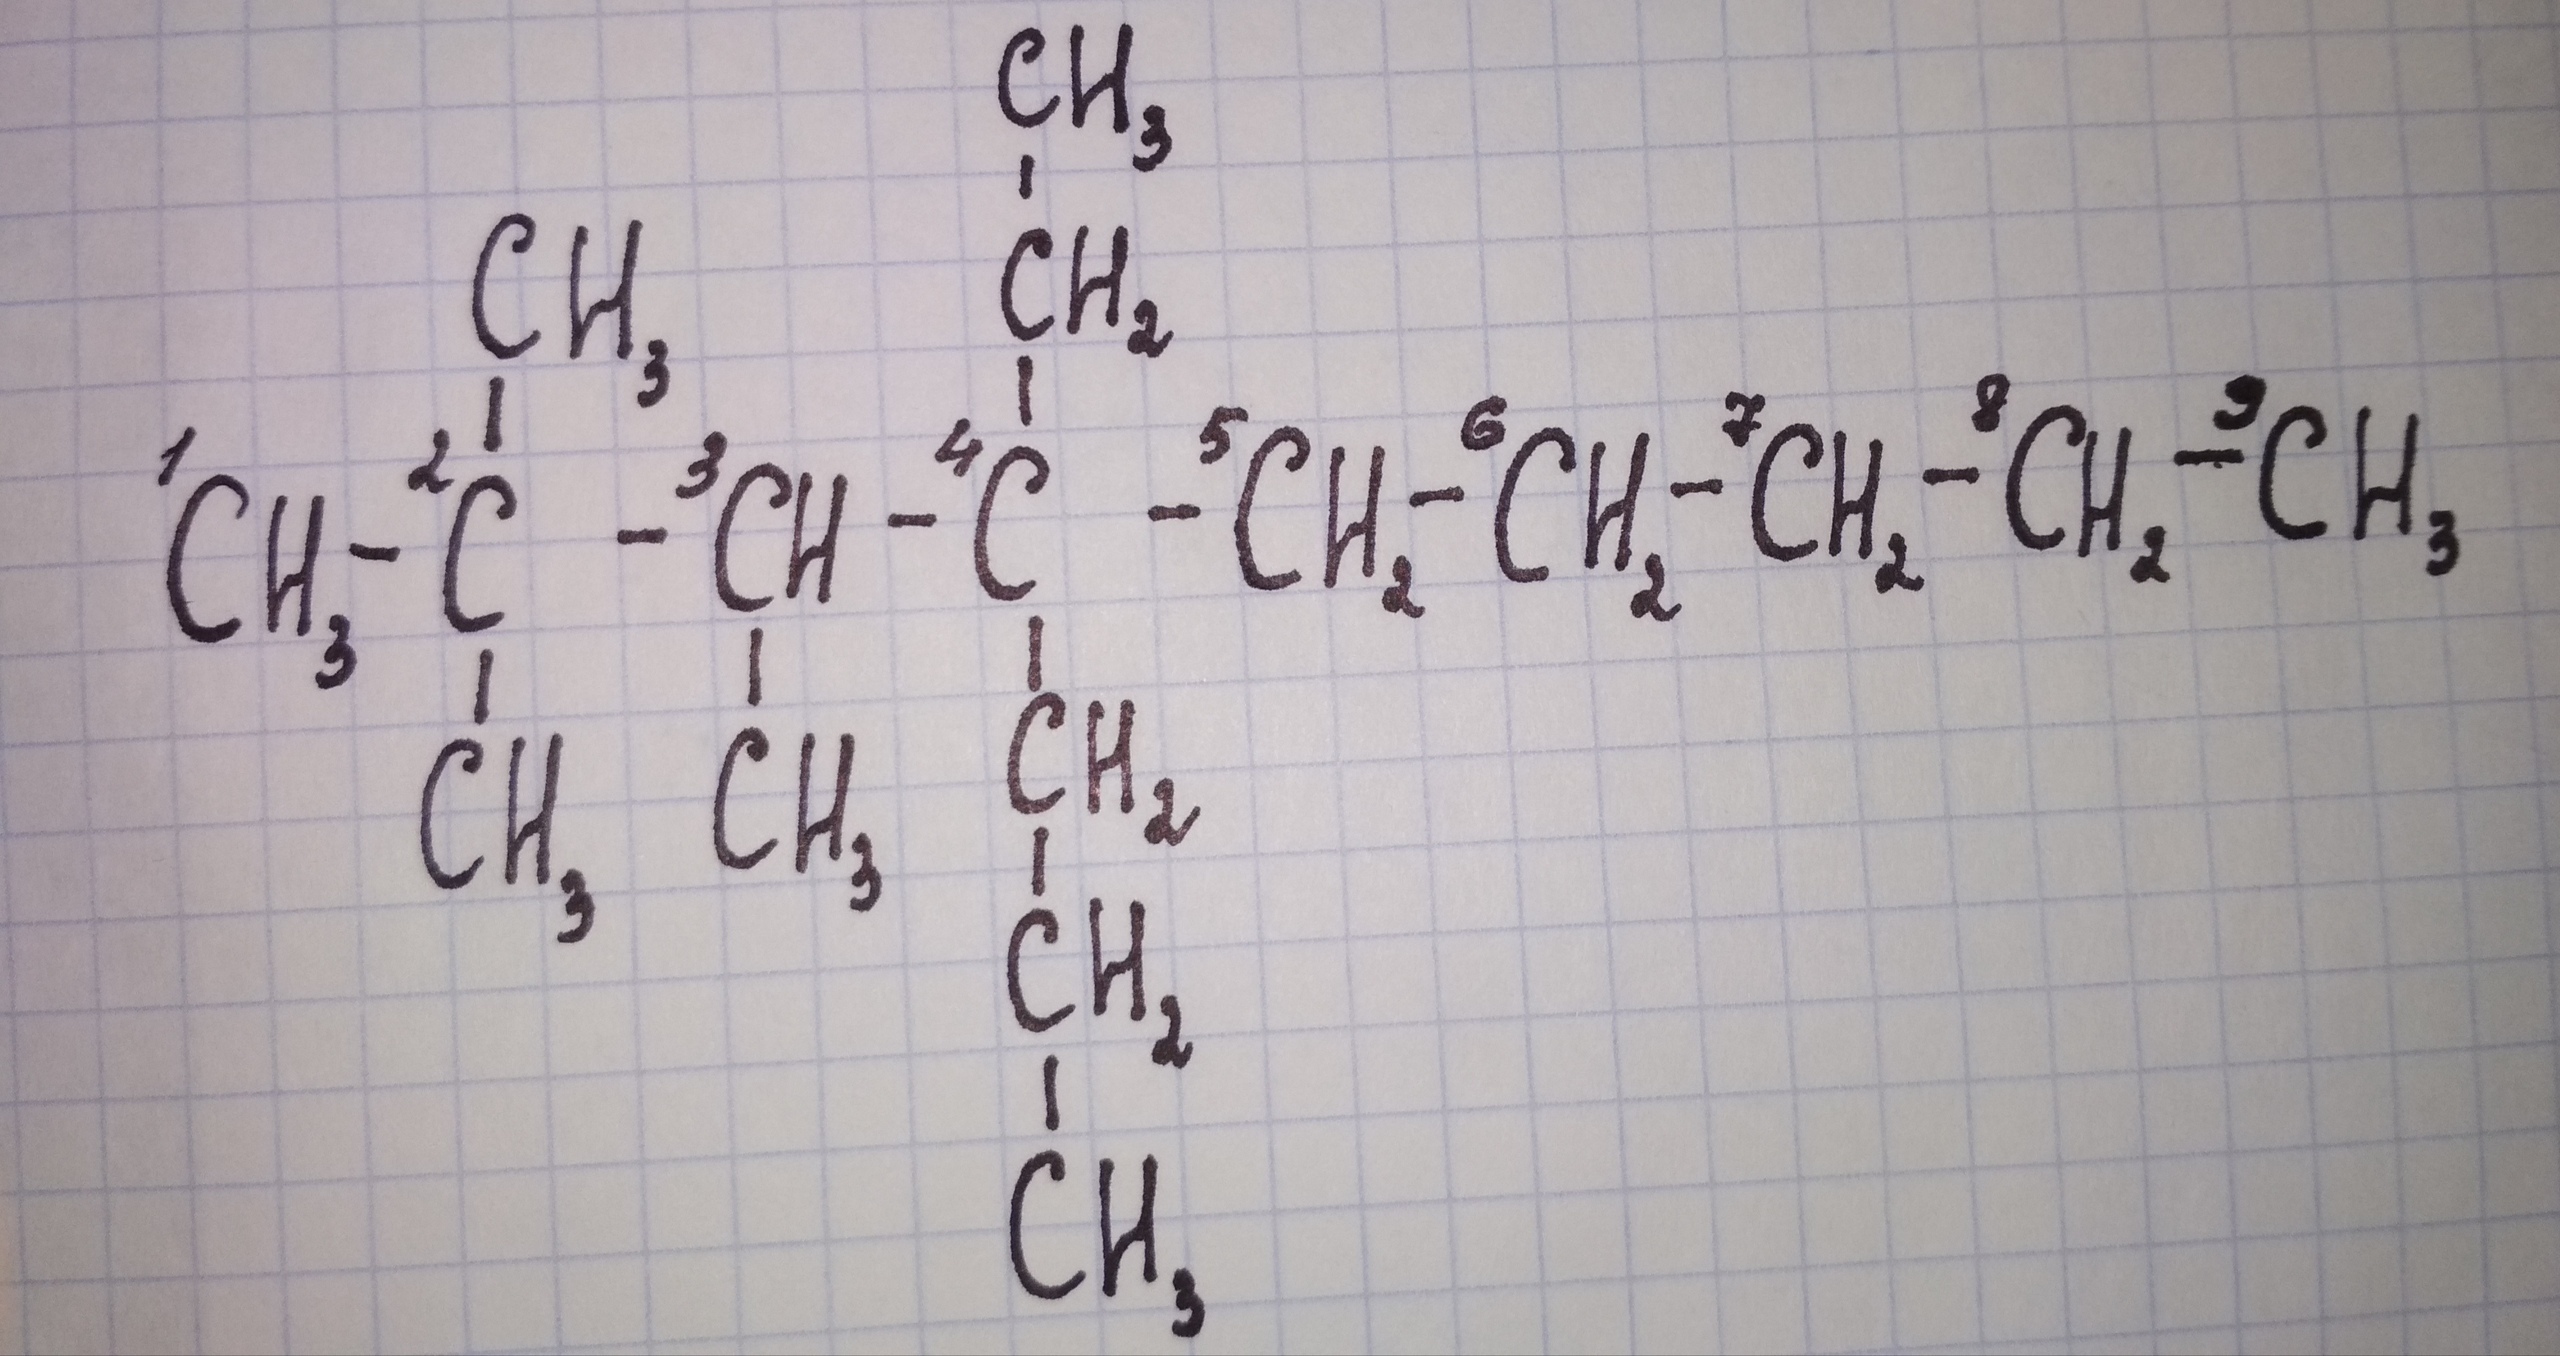 CH₃
CH₃ CH₂
¹CH₃-²C-³CH-⁴C-⁵CH₂-⁶CH₂-⁷CH₂-⁸CH₂-⁹CH₃
CH₃ CH₃ CH₂
CH₂
CH₃